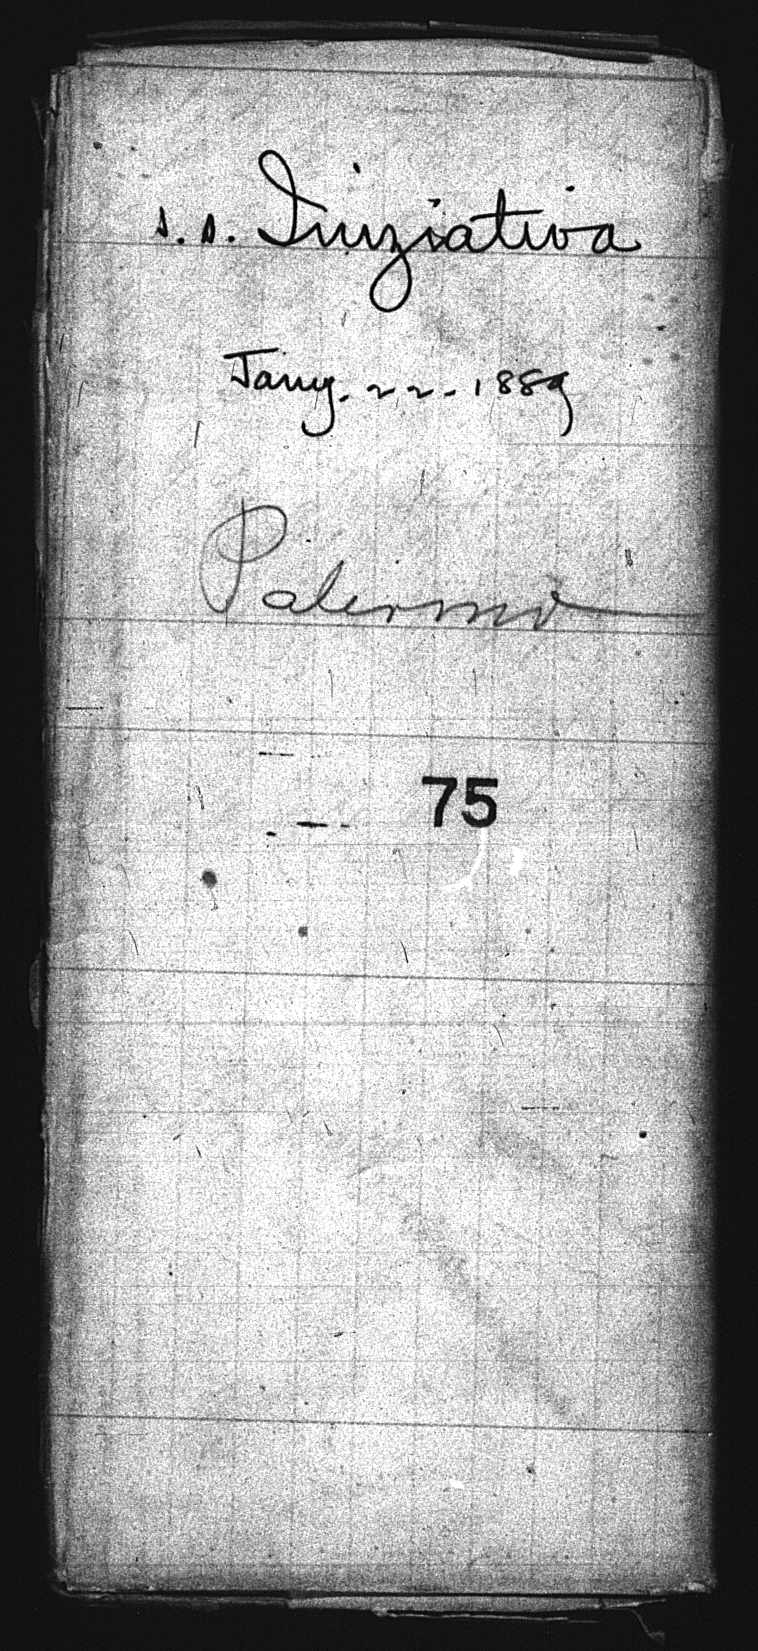 s.s. Iniziativa
Jany. 22-1889
Palermo
75